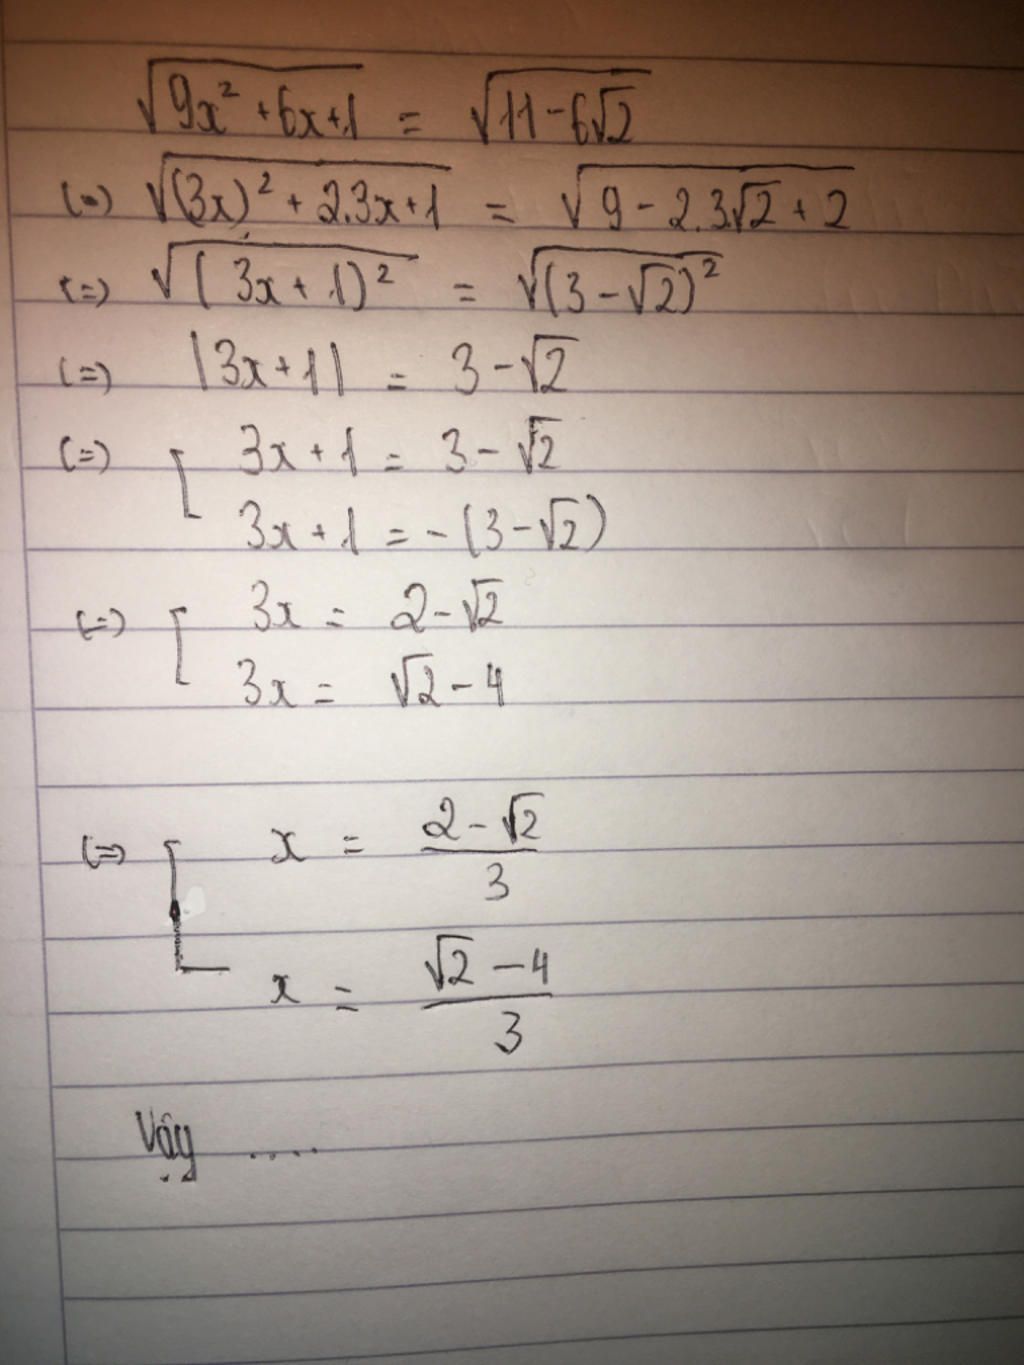 √(9x² + 6x + 1) = √(11 - 6√2)
(=) √((3x)² + 2.3x + 1) = √(9 - 2.3√2 + 2)
(=) √((3x + 1)²) = √((3 - √2)²)
(=) |3x + 1| = 3 - √2
(=) [ 3x + 1 = 3 - √2
3x + 1 = - (3 - √2)
(=) [ 3x = 2 - √2
3x = √2 - 4
(=) [ x = (2 - √2)/3
x = (√2 - 4)/3
Vậy ....